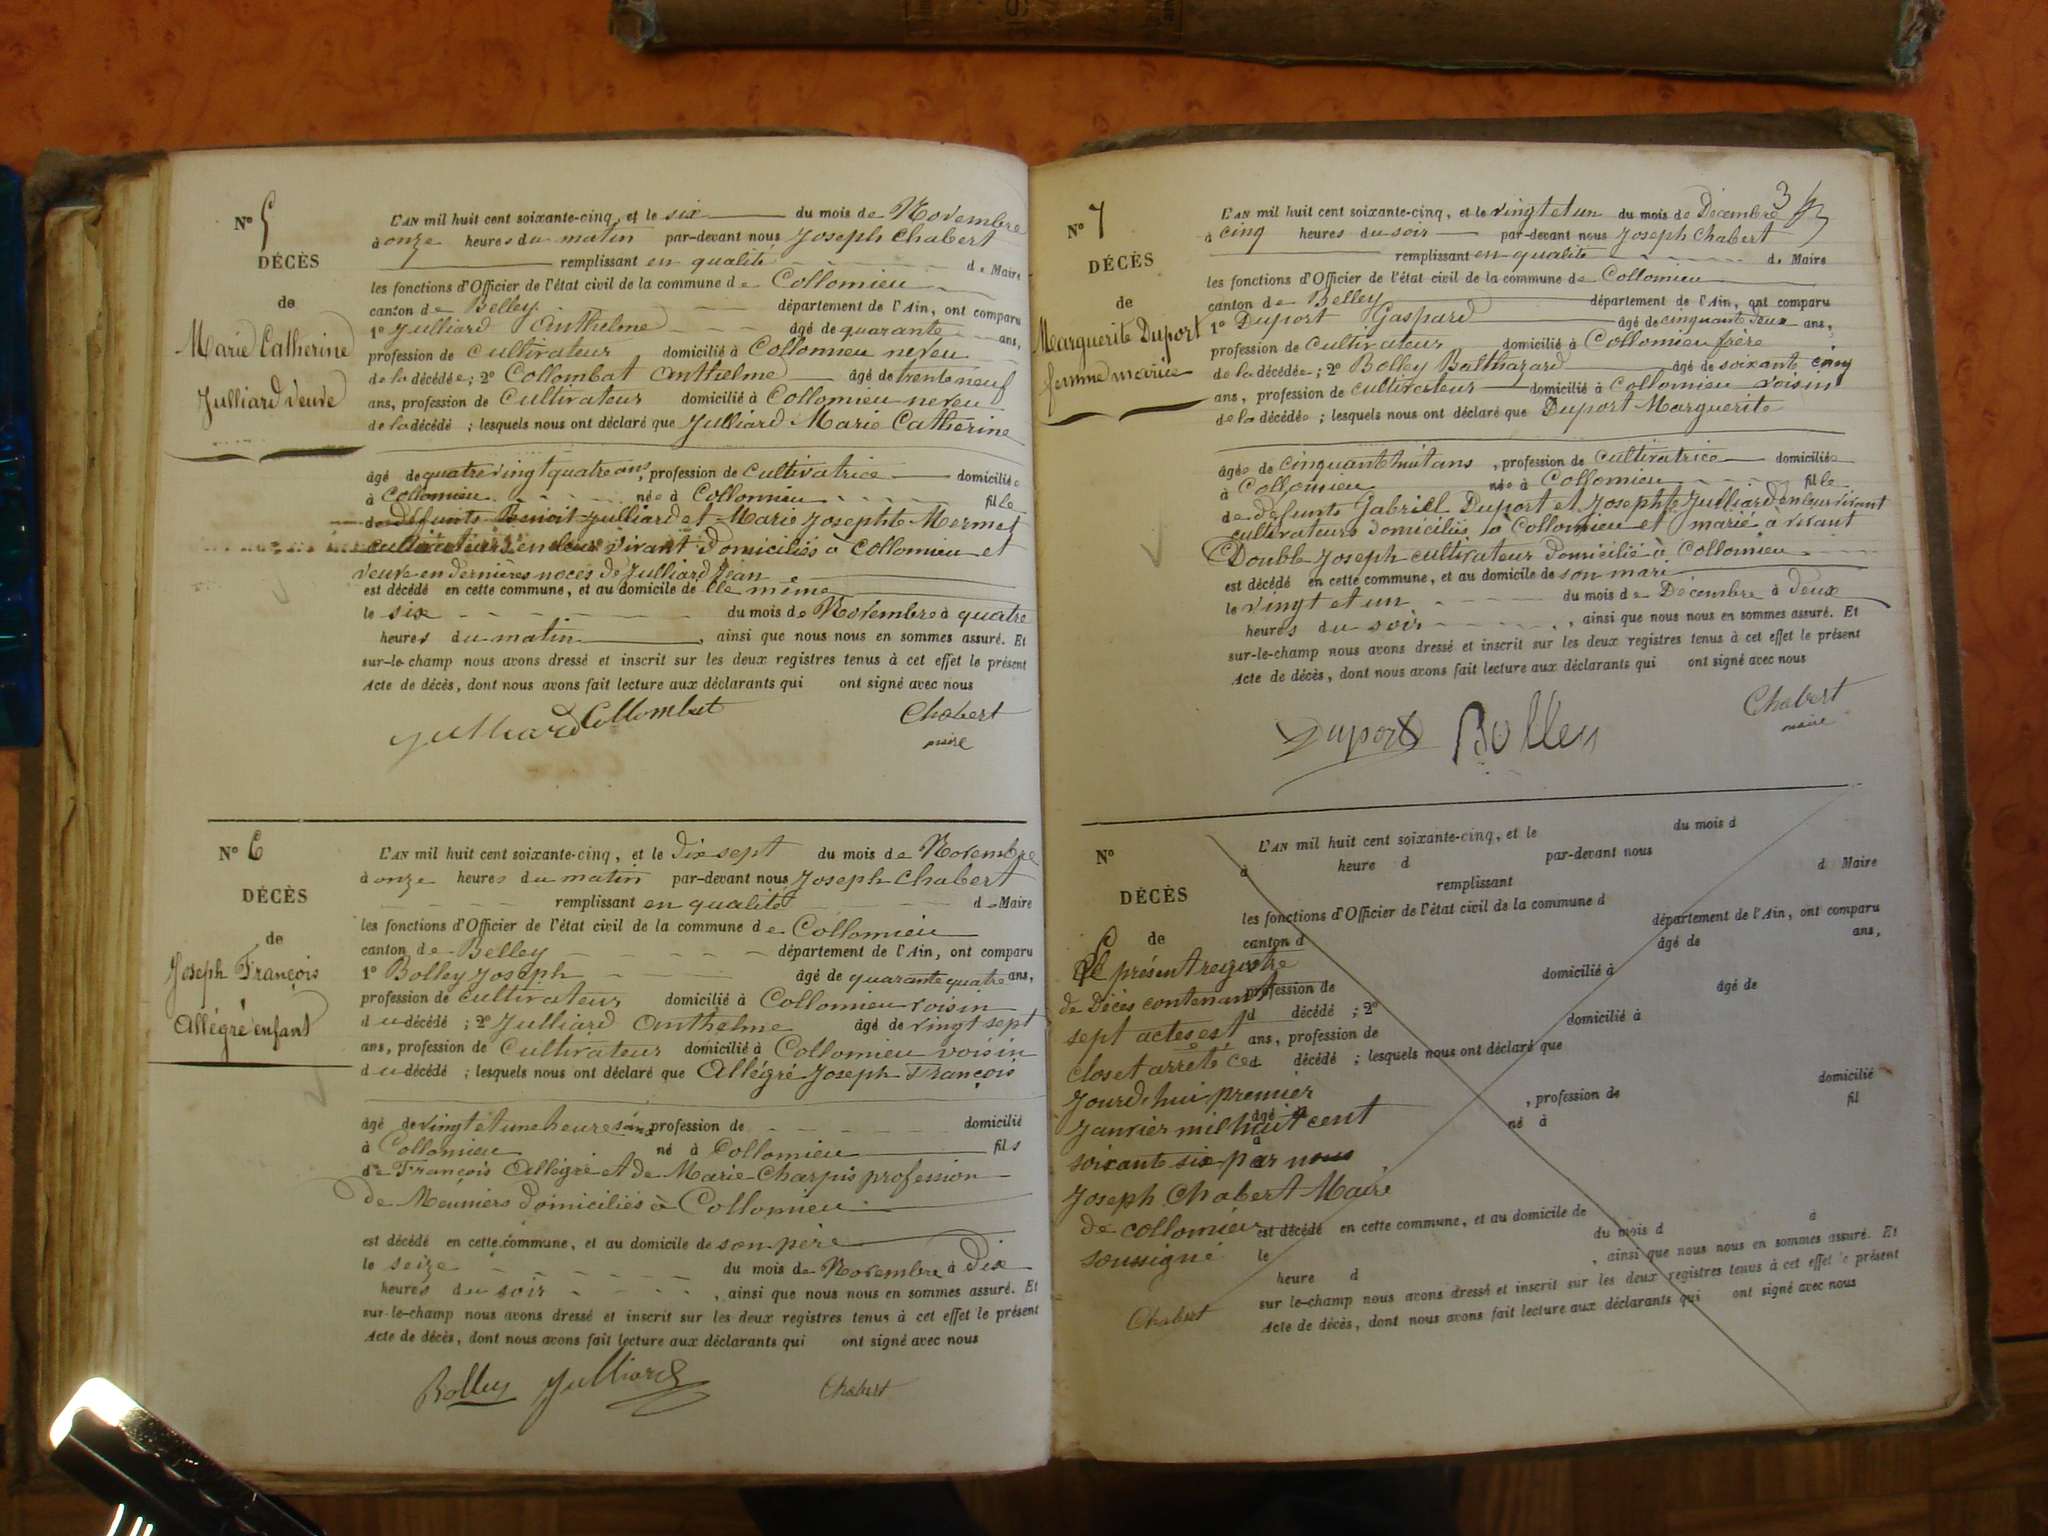 N° 5
DÉCÈS
de
Marie Catherine
Julliard veuve
L'AN mil huit cent soixante-cinq, et le six du mois de Novembre
à onze heures du matin par-devant nous Joseph Chabert
remplissant en qualité de Maire
les fonctions d'Officier de l'état civil de la commune de Collomieu
canton de Belley département de l'Ain, ont comparu
1° Julliard Anthelme âgé de quarante ans,
profession de Cultivateur domicilié à Collomieu neveu
de la décédée; 2° Collombat Anthelme âgé de trente neuf
ans, profession de Cultivateur domicilié à Collomieu neveu
de la décédé ; lesquels nous ont déclaré que Julliard Marie Catherine
âgé de quatre vingt quatre ans, profession de cultivatrice domiciliée
à Collomieu née à Collomieu fille
de défunts Benoit Julliard et Marie Josephte Mermet
cultivateurs en leur vivant domiciliés à Collomieu et
veuve en dernières noces de Julliard Jean
est décédé en cette commune, et au domicile de elle même
le six du mois de Novembre à quatre
heures du matin , ainsi que nous nous en sommes assuré. Et
sur-le-champ nous avons dressé et inscrit sur les deux registres tenus à cet effet le présent
Acte de décès, dont nous avons fait lecture aux déclarants qui ont signé avec nous
Julliard Collombat Chabert
maire
N° 6
DÉCÈS
de
Joseph François
Allégré enfant
L'AN mil huit cent soixante-cinq, et le dix sept du mois de Novembre
à onze heures du matin par-devant nous Joseph Chabert
remplissant en qualité de Maire
les fonctions d'Officier de l'état civil de la commune de Collomieu
canton de Belley département de l'Ain, ont comparu
1° Bolley Joseph âgé de quarante quatre ans,
profession de cultivateur domicilié à Collomieu voisin
du décédé ; 2° Julliard Anthelme âgé de vingt sept
ans, profession de Cultivateur domicilié à Collomieu voisin
du décédé ; lesquels nous ont déclaré que Allégré Joseph François
âgé de vingt et une heure sans profession de domicilié
à Collomieu né à Collomieu fils
de François Allégré et de Marie Charpis profession
de Meuniers domiciliés à Collomieu
est décédé en cette commune, et au domicile de son père
le seize du mois de Novembre à dix
heures du soir , ainsi que nous nous en sommes assuré. Et
sur-le-champ nous avons dressé et inscrit sur les deux registres tenus à cet effet le présent
Acte de décès, dont nous avons fait lecture aux déclarants qui ont signé avec nous
Bolley Julliard Chabert
N° 7
DÉCÈS
de
Marguerite Duport
femme mariée
L'AN mil huit cent soixante-cinq, et le vingt et un du mois de Décembre
à cinq heures du soir par-devant nous Joseph Chabert
remplissant en qualité de Maire
les fonctions d'Officier de l'état civil de la commune de Collomieu
canton de Belley département de l'Ain, ont comparu
1° Duport Gaspard âgé de cinquante deux ans,
profession de Cultivateur domicilié à Collomieu frère
de la décédée; 2° Bolley Balthazard âgé de soixante cinq
ans, profession de cultivateur domicilié à Collomieu voisin
de la décédée ; lesquels nous ont déclaré que Duport Marguerite
âgée de cinquante huit ans , profession de cultivatrice domiciliée
à Collomieu née à Collomieu fille
de défunts Gabriel Duport et Josephte Julliard en leur vivant
cultivateurs domiciliés à Collomieu et marié a vivant
Double Joseph cultivateur domicilié à Collomieu
est décédé en cette commune, et au domicile de son mari
le vingt et un du mois de Décembre à deux
heures du soir , ainsi que nous nous en sommes assuré. Et
sur-le-champ nous avons dressé et inscrit sur les deux registres tenus à cet effet le présent
Acte de décès, dont nous avons fait lecture aux déclarants qui ont signé avec nous
Duport Bolley Chabert
maire
N°
DÉCÈS
de
L'AN mil huit cent soixante-cinq, et le du mois d
à heure d par-devant nous
remplissant d Maire
les fonctions d'Officier de l'état civil de la commune d
canton d département de l'Ain, ont comparu
âgé de ans,
profession de domicilié à
d décédé ; 2° âgé de
ans, profession de domicilié à
d décédé ; lesquels nous ont déclaré que
âgé d , profession de domicilié
à né à fil
est décédé en cette commune, et au domicile de
le du mois d à
heure d , ainsi que nous nous en sommes assuré. Et
sur le-champ nous avons dressé et inscrit sur les deux registres tenus à cet effet le présent
Acte de décès, dont nous avons fait lecture aux déclarants qui ont signé avec nous
Le présent registre
de Décès contenant
sept actes est
clos et arrêté ce
jourd'hui premier
Janvier mil huit cent
soixante six par nous
Joseph Chabert Maire
de collomieu
soussigné
Chabert